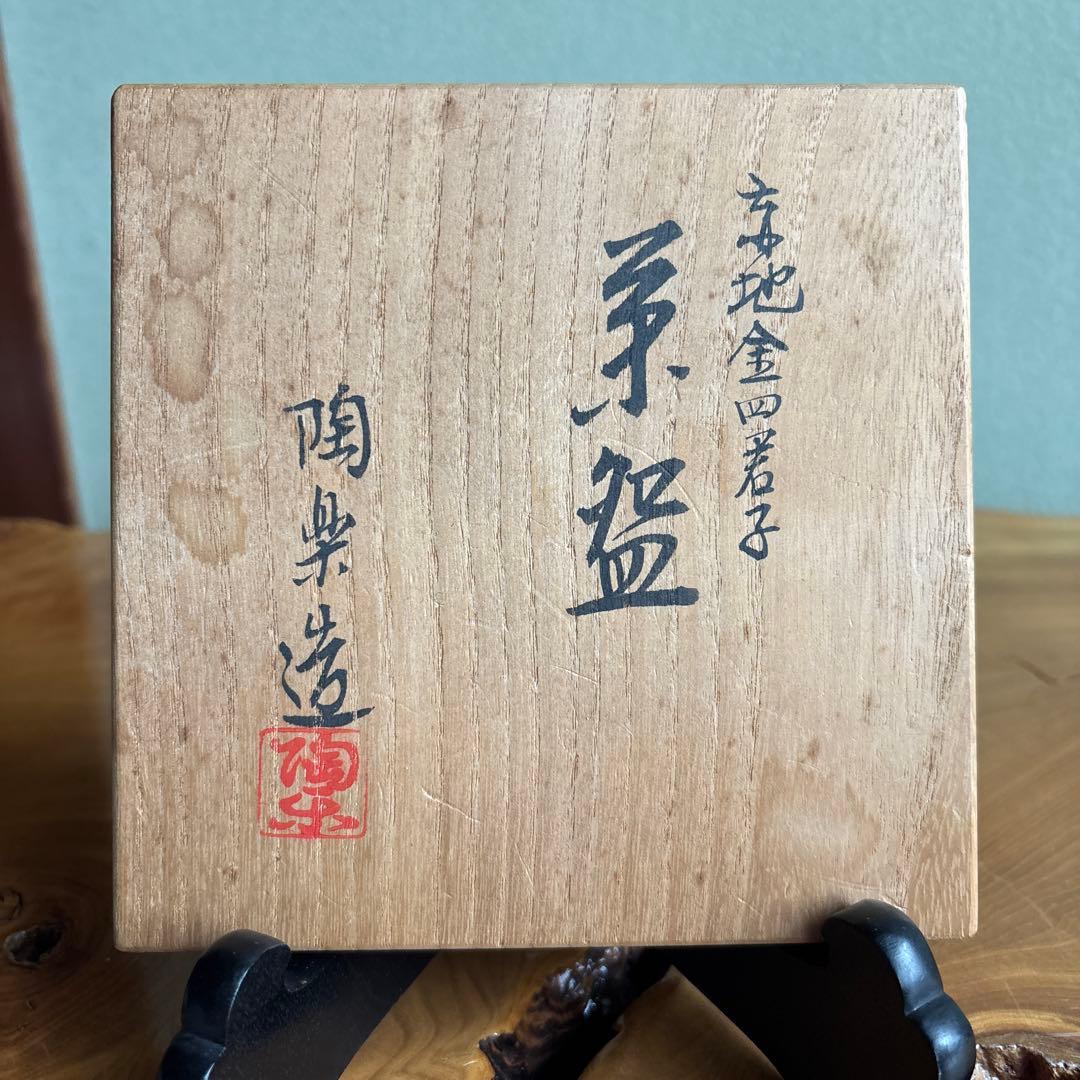 赤地金四君子
菓盌
陶楽造
陶楽